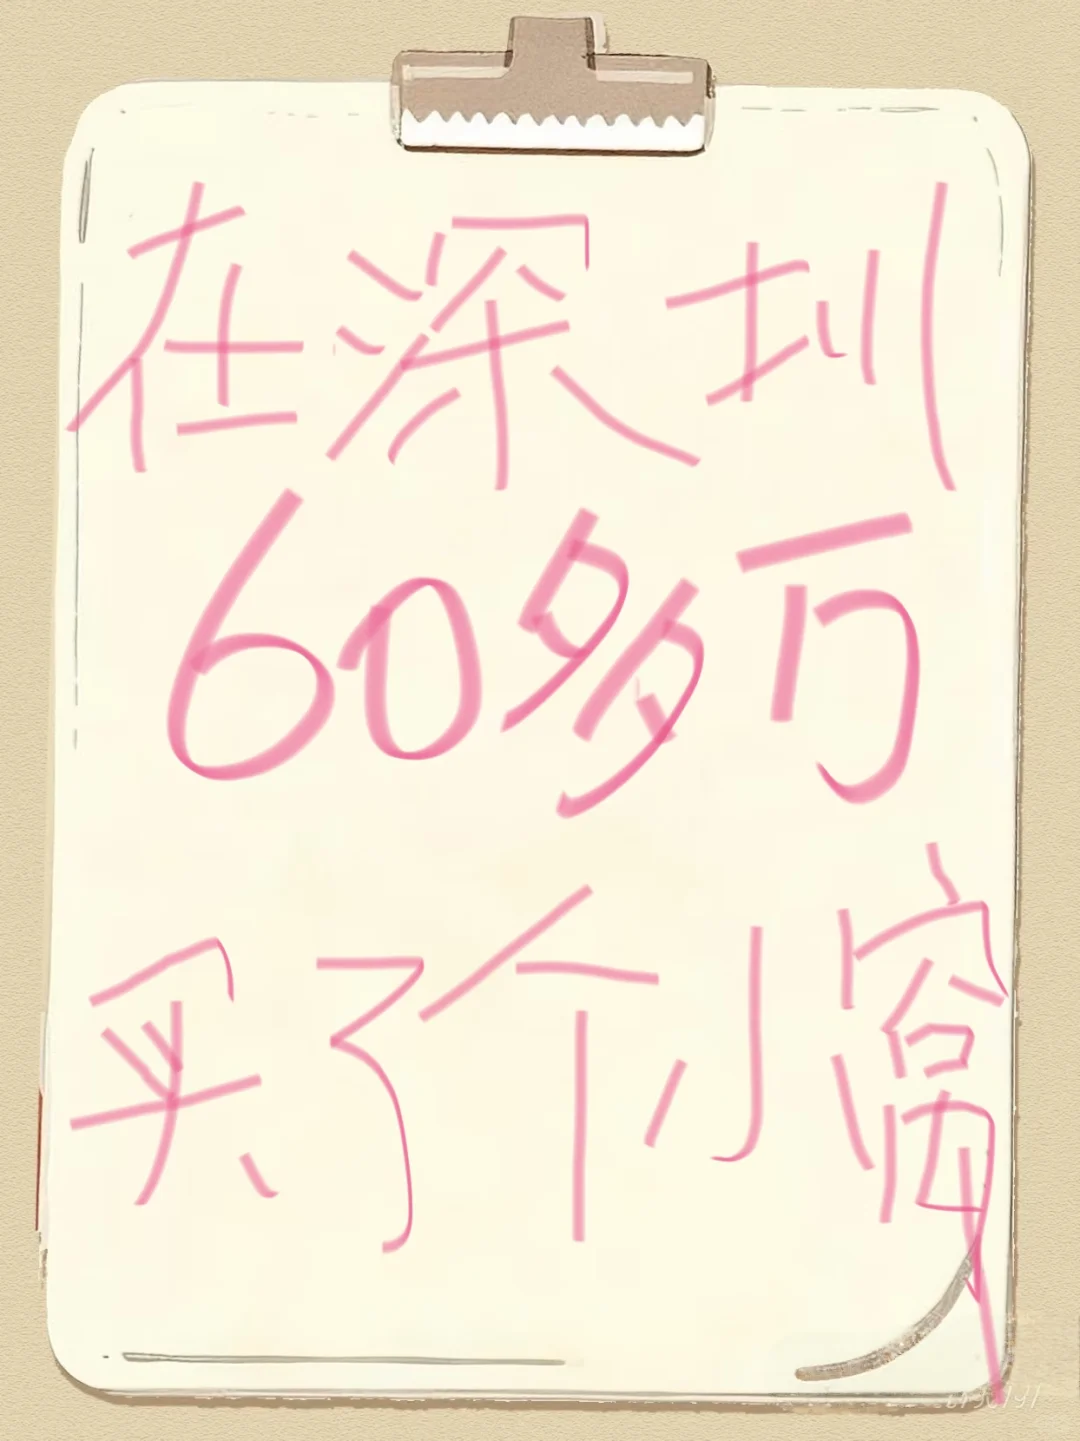 在深圳
60多万
买了个小窝